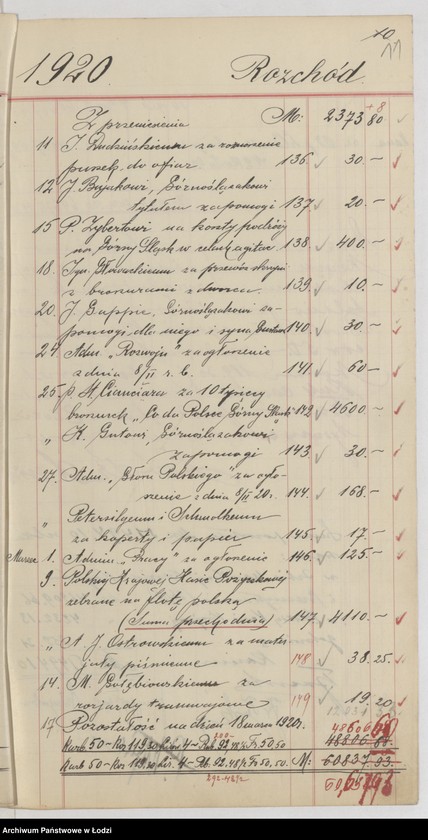 10
11
1920 Rozchód
+8
Z przeniesienia M: 2373 80
11 J. Dudzińskiemu za roznoszenie
puszek do ofiar 136 30 –
12 J. Bujakowi, Górnoślązakowi
tytułem zapomogi 137 20. –
15 P. Zybertowi na koszty podróży
na Górny Śląsk w celach agitac. 138. 400. –
18. Ign. Głowackiemu za przewóz skrzyń
z broszurami z dworca. 139. 10. –
20. J. Gappie, Górnoślązakowi za-
pomogi dla niego i syna 140 30. –
24. Adm. „Rozwoju” za ogłoszenie
z dnia 8/II r. b. 141 60 –
25. p. St. Cianciara za 10 tysięcy
broszurek „Co da Polsce Górny Śląsk” 142 4600. –
„ K. Gutowi, Górnoślązakowi
zapomogi 143 30. –
27. Adm. „Głosu Polskiego” za ogło-
szenie z dnia 8/II 20 r. 144. 168. –
„ Petersilgeum i Schmolkeum
za koperty i papier 145. 17. –
Marzec 1. Admin. „Pracy” za ogłoszenie 146. 125. –
9. Polskiej Krajowej Kasie Pożyczkowej
zebrane na flotę polską
(Suma przechodnia) 147 4110. –
„ A. J. Ostrowskiemu za mater-
jały piśmienne 148 38. 25. –
14. M. Gołębiowskiemu za
rozjazdy tramwajowe 149 19. 20. –
17 Pozostałość na dzień 18 marca 1920 r.
200 –
48806. 80.
M: 60837. 93.
292-48/2